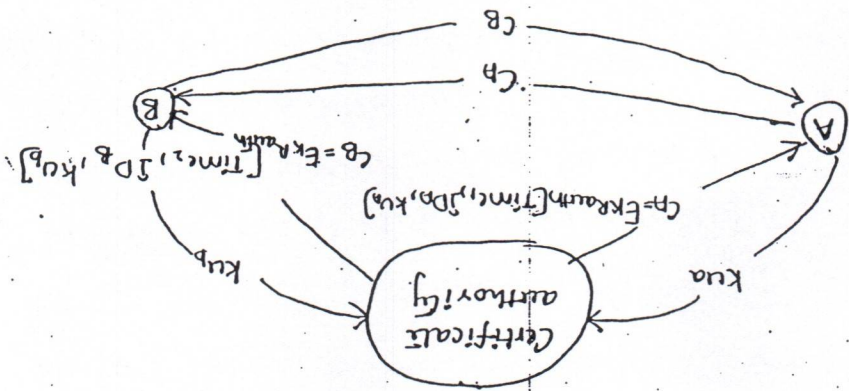 Certificate
authority
KUa
KUb
CA=EKRauth[Time1,IDA,KUa]
CB=EKRauth
[Time2,IDB,KUb]
A
B
CA
CB